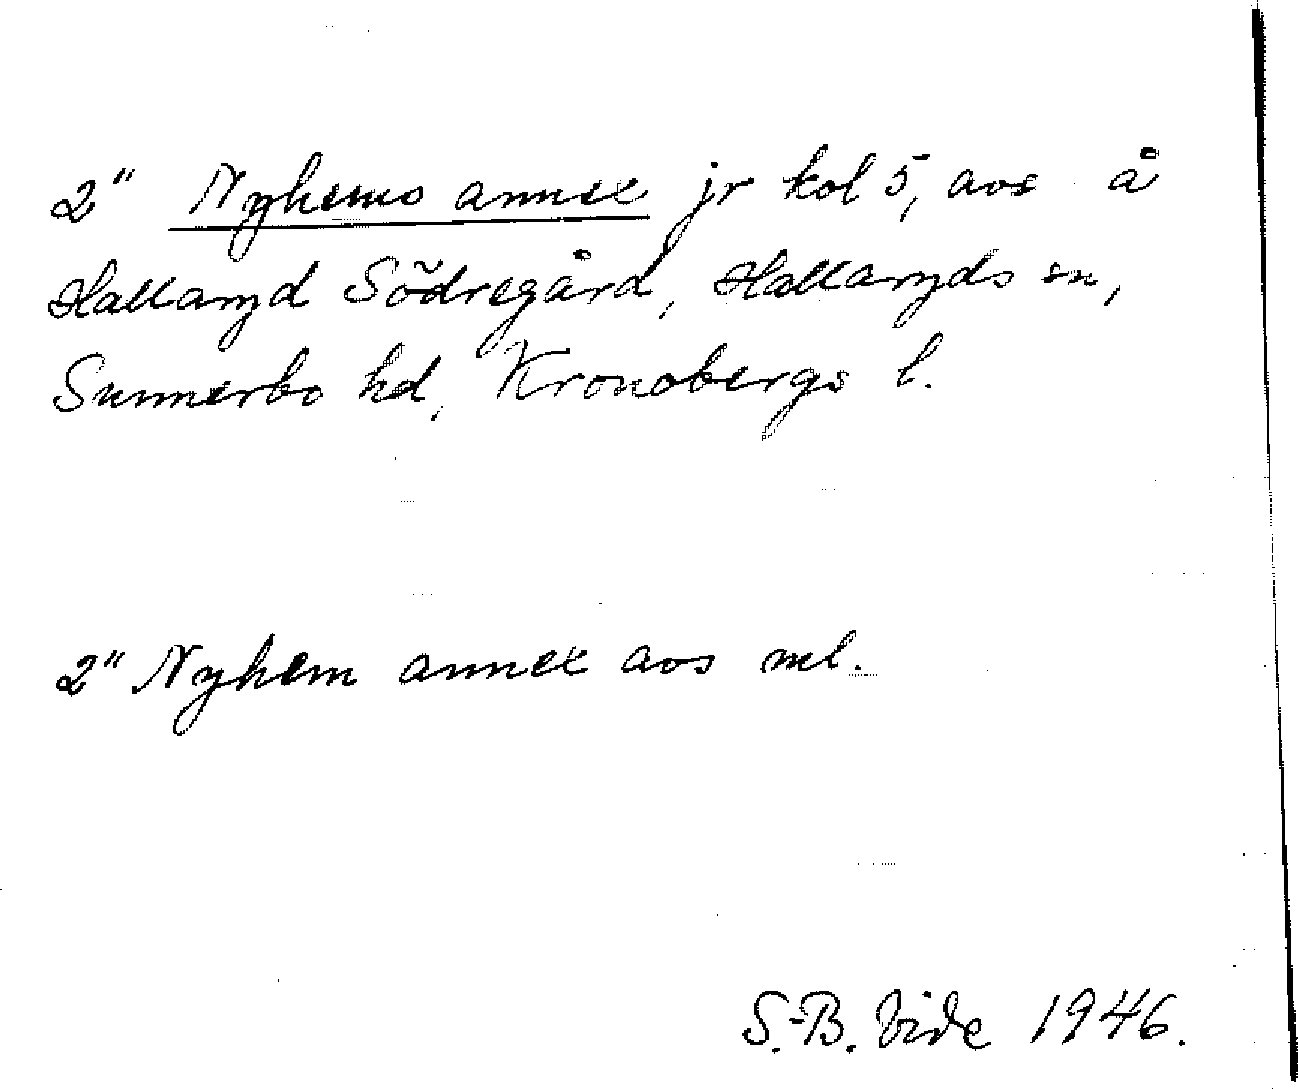 2" Nyhems annex jr kol 5, avs å
Hallaryd Södregård, Hallaryds sn,
Sunnerbo hd, Kronobergs l.
2" Nyhem annex avs ml.
S.-B. Vide 1946.